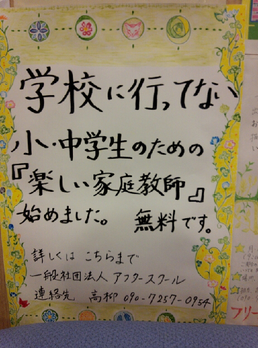 学校に行ってない
小・中学生のための
『楽しい家庭教師』
始めました。 無料です。
詳しくは こちらまで
一般社団法人 アフタースクール
連絡先 高柳 090-7257-0954
フリー